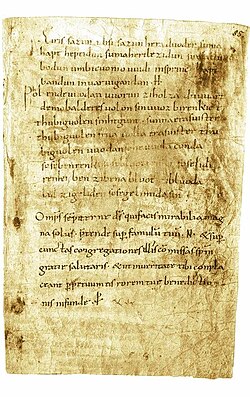 Eiris sazun idisi sazun hera duoder suma
hapt heptidun suma herilezidun suma clu
bodun umbicuoniouuidi insprinc hapt
bandun inuar uigandun · H ·
Phol endeuuodan uuorun ziholza du uuart
demobalderesuolon sinuuoz birenkict
thubiguolen sinhtgunt · sunnaerasuister
thubiguolen friia uolla erasuister thu
biguolen uuodan sohe uuola conda
sosebenrenki soselidi
renki ben zibena bluot zibluoda
lid zigeliden sosegelimidasin
Omps sempiterne ds quifacis mirabilia mag
na solus ptende sup famulu tuu · N · & sup
cunctas congregationes illis comissas spm
gratie salutaris · & ut inueritate tibi compla
ceant pp&uum eis rorem tuae benedictio
nis infunde p